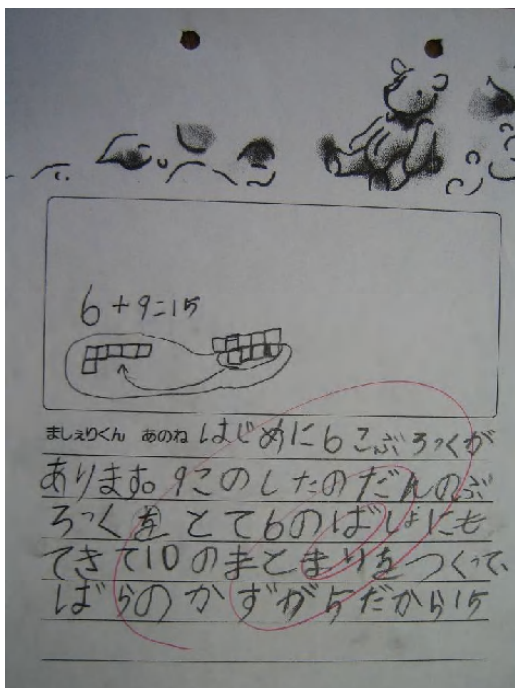 6+9=15
ましぇりくん あのね はじめに6こぶろっくが
あります。9このしたのだんのぶ
ろっくをとて6のばしょにも
てきて10のまとまりをつくって、
ばらのかずが5だから15